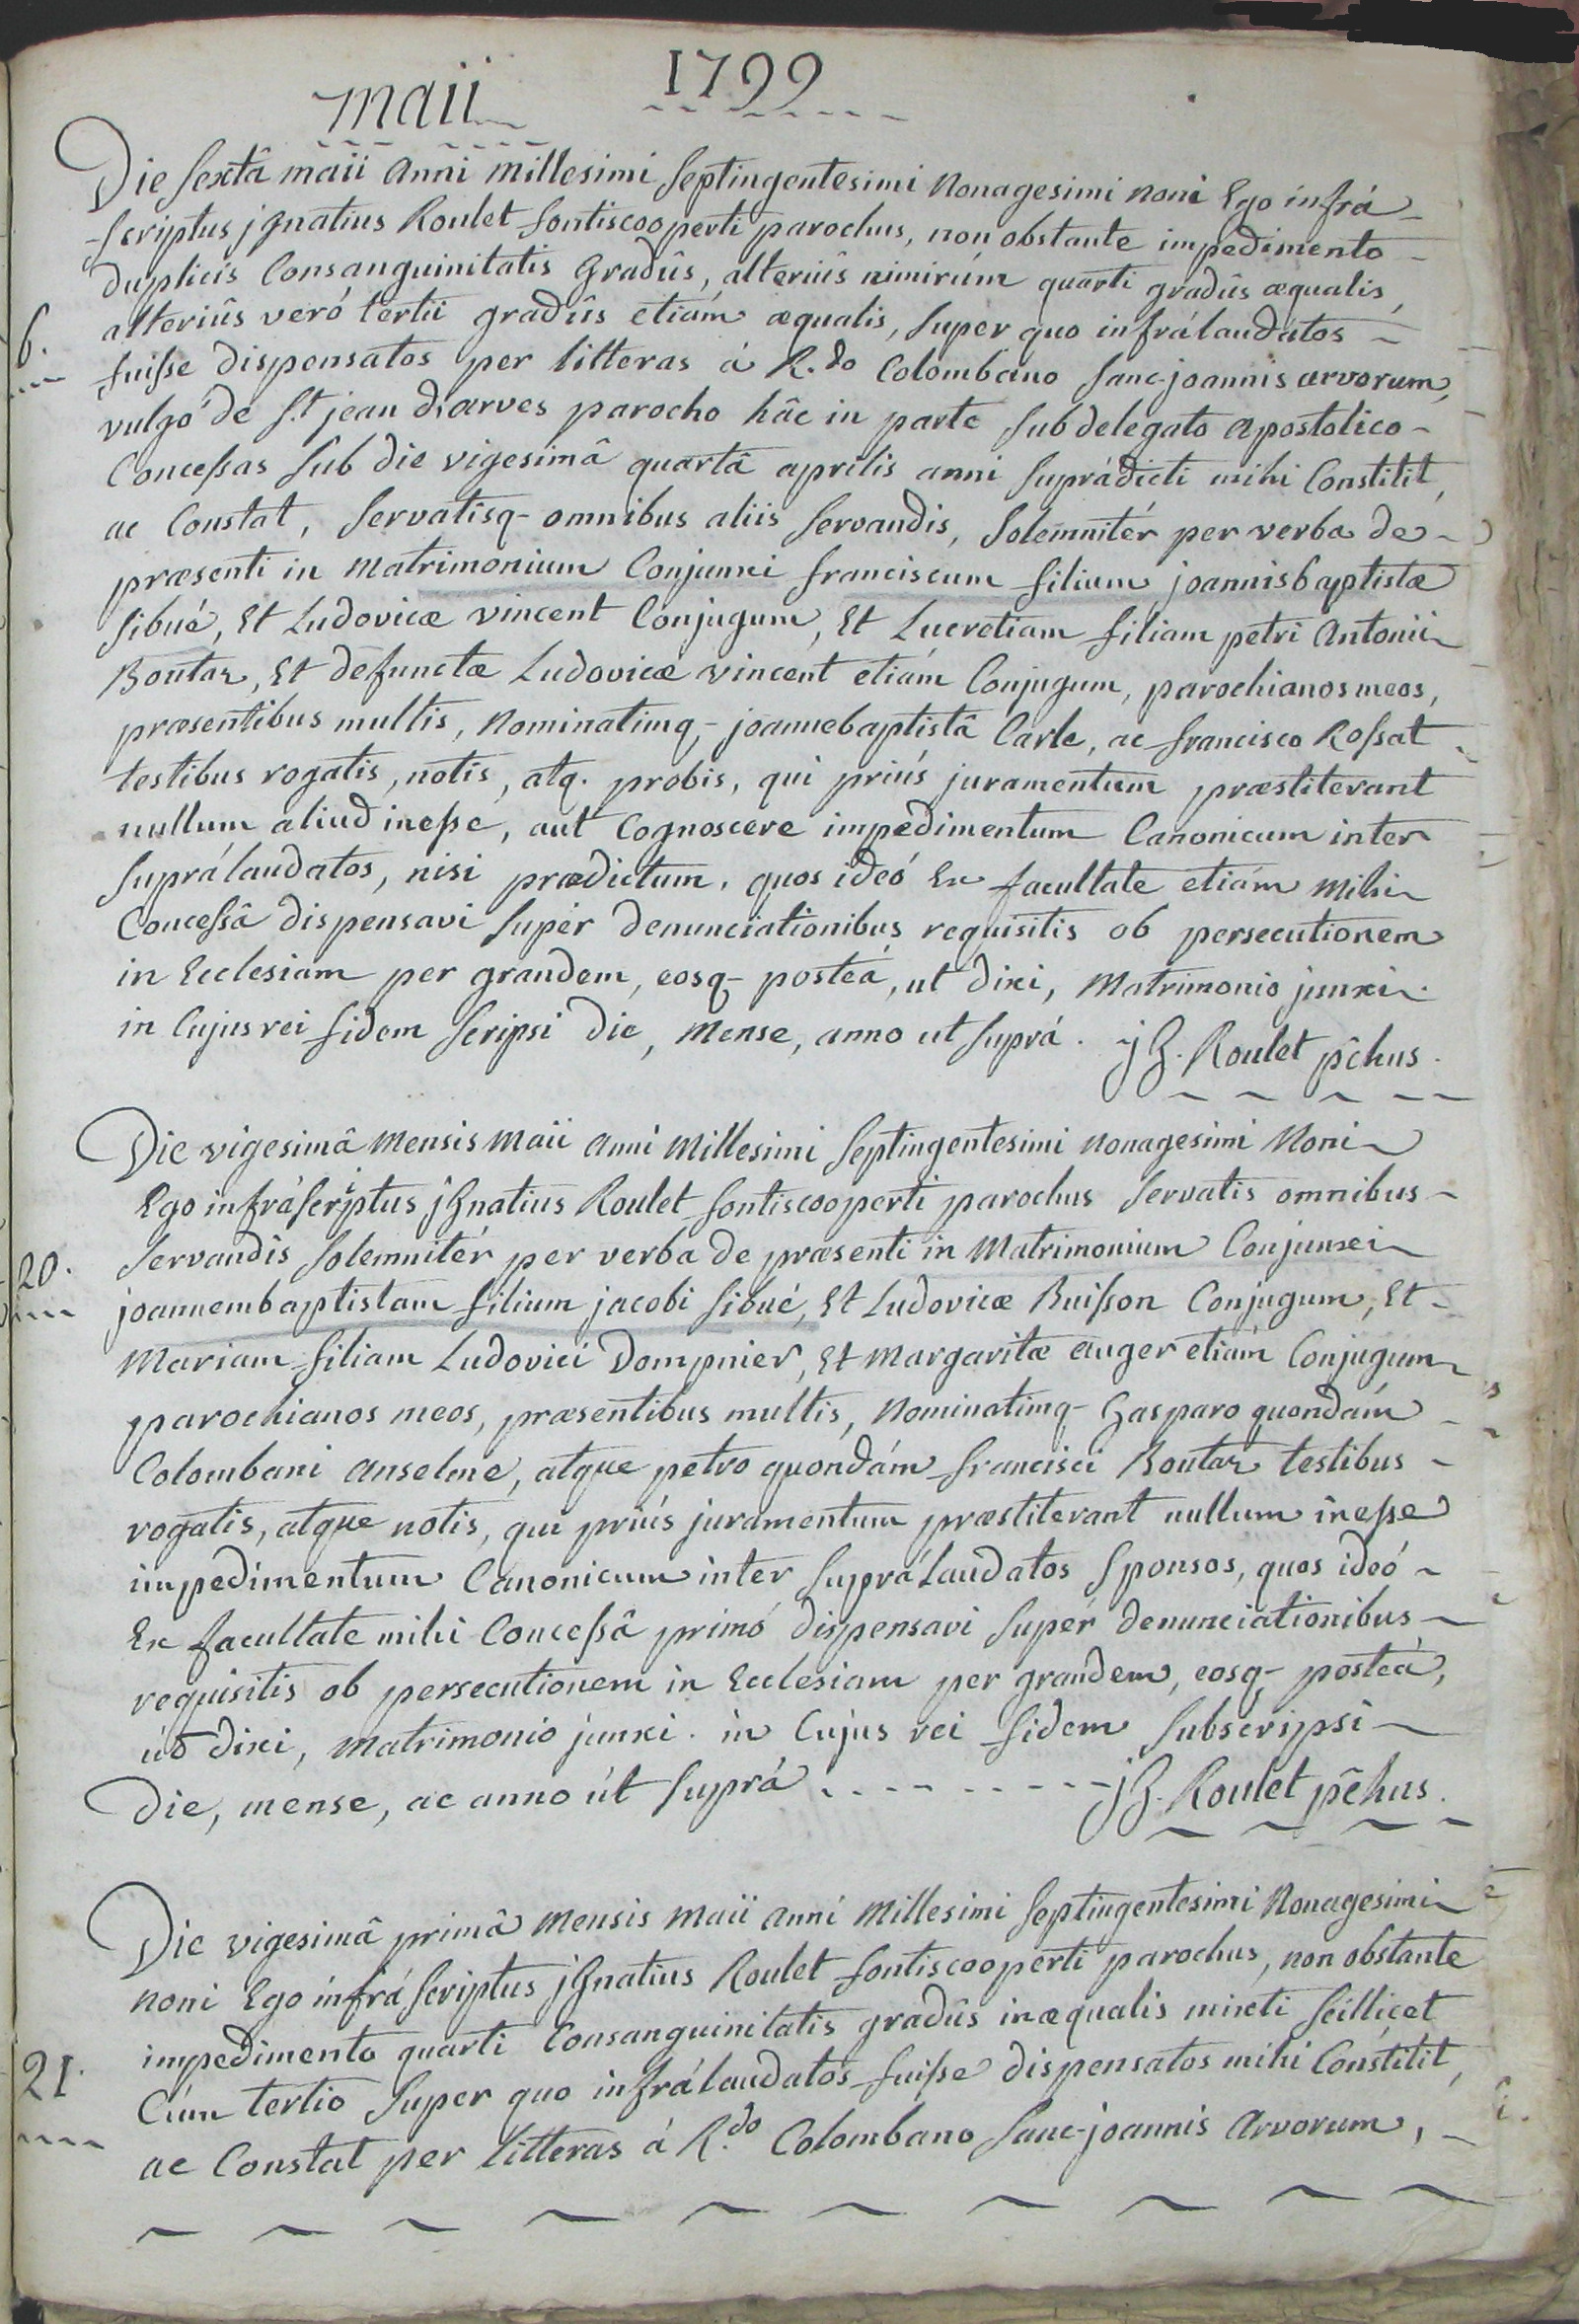 maii 1799
Die sextâ maii anni millesimi septingentesimi nonagesimi noni Ego infrá-
-scriptus jgnatius Roulet fontiscooperti parochus, non obstante impedimento-
duplicis Consanguinitatis gradûs, alteriûs nimirúm quarti gradûs æqualis,
alteriûs veró tertii gradûs etiám æqualis, super quo infrálaudatos-
6. fuisse dispensatos per litteras á R.do Colombano sanc-joannis arvorum,
vulgó de st jean d'arves parocho hâc in parte subdelegato apostolico-
Concessas sub die vigesimâ quartâ aprilis anni suprádicti mihi Constitit,
ac Constat, servatisq- omnibus aliis servandis, solemnitér per verba de-
præsenti in matrimonium Conjunxi franciscum filium joannisbaptistæ
sibué, Et Ludovicæ vincent Conjugum, Et Lucretiam filiam petri antonii
Boutaz, Et defunctæ Ludovicæ vincent etiám Conjugum, parochianos meos,
præsentibus multis, nominatimq,- joannebaptistâ Carle, ac francisco Rossat
testibus rogatis, notis, atq. probis, qui priús juramentum præstiterant
nullum aliud inesse, aut Cognoscere impedimentum Canonicum inter
suprálaudatos, nisi prædictum, quos ideó Ex facultate etiám mihi
Concessâ dispensavi supér denunciationibus requisitis ob persecutionem
in Ecclesiam per grandem, eosq- posteá, ut dixi, matrimonio junxi.
in Cujus rei fidem scripsi die, mense, anno ut suprá. jg. Roulet pĉhus.
Die vigesimâ mensis maii anni millesimi septingentesimi nonagesimi noni
Ego infráscriptus jgnatius Roulet fontiscooperti parochus servatis omnibus-
20. servandis solemnitér per verba de præsenti in matrimonium Conjunxi
joannembaptistam filium jacobi sibué, Et Ludovicæ Buisson Conjugum, Et-
mariam filiam Ludovici Dompnier, Et margaritæ auger etiám Conjugum
parochianos meos, præsentibus multis, nominatimq- gasparo quondám
Colombani anselme, atque petro quondám francisci Boutaz testibus-
rogatis, atque notis, qui priús juramentum præstiterant nullum inesse
impedimentum Canonicum inter suprálaudatos sponsos, quos ideó-
Ex facultate mihi Concessâ primó dispensavi supér denunciationibus-
requisitis ob persecutionem in Ecclesiam per grandem, eosq- posteá,
út dixi, matrimonio junxi. in Cujus rei fidem subscripsi-
die, mense, ac anno út suprá - - - - - - - - jg. Roulet pĉhus.
Die vigesimâ primâ mensis maii anni millesimi septingentesimi nonagesimi
noni Ego infráscriptus jgnatius Roulet fontiscooperti parochus, non obstante
impedimento quarti Consanguinitatis gradûs inæqualis mixti scillicet
21. Cúm tertio super quo infrálaudatos fuisse dispensatos mihi Constitit,
ac Constat per litteras á R.do Colombano sanc-joannis arvorum,-